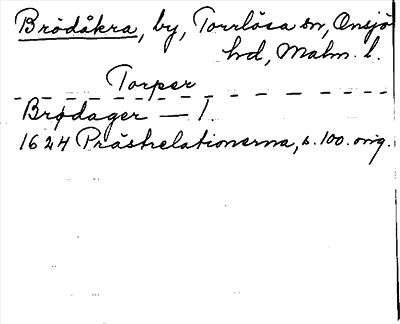 Brödåkra, by, Torrlösa sn, Onsjö
hd, Malm. l.
Torper
Brødager — 1.
1624 Prästrelationerna, s. 100. orig.